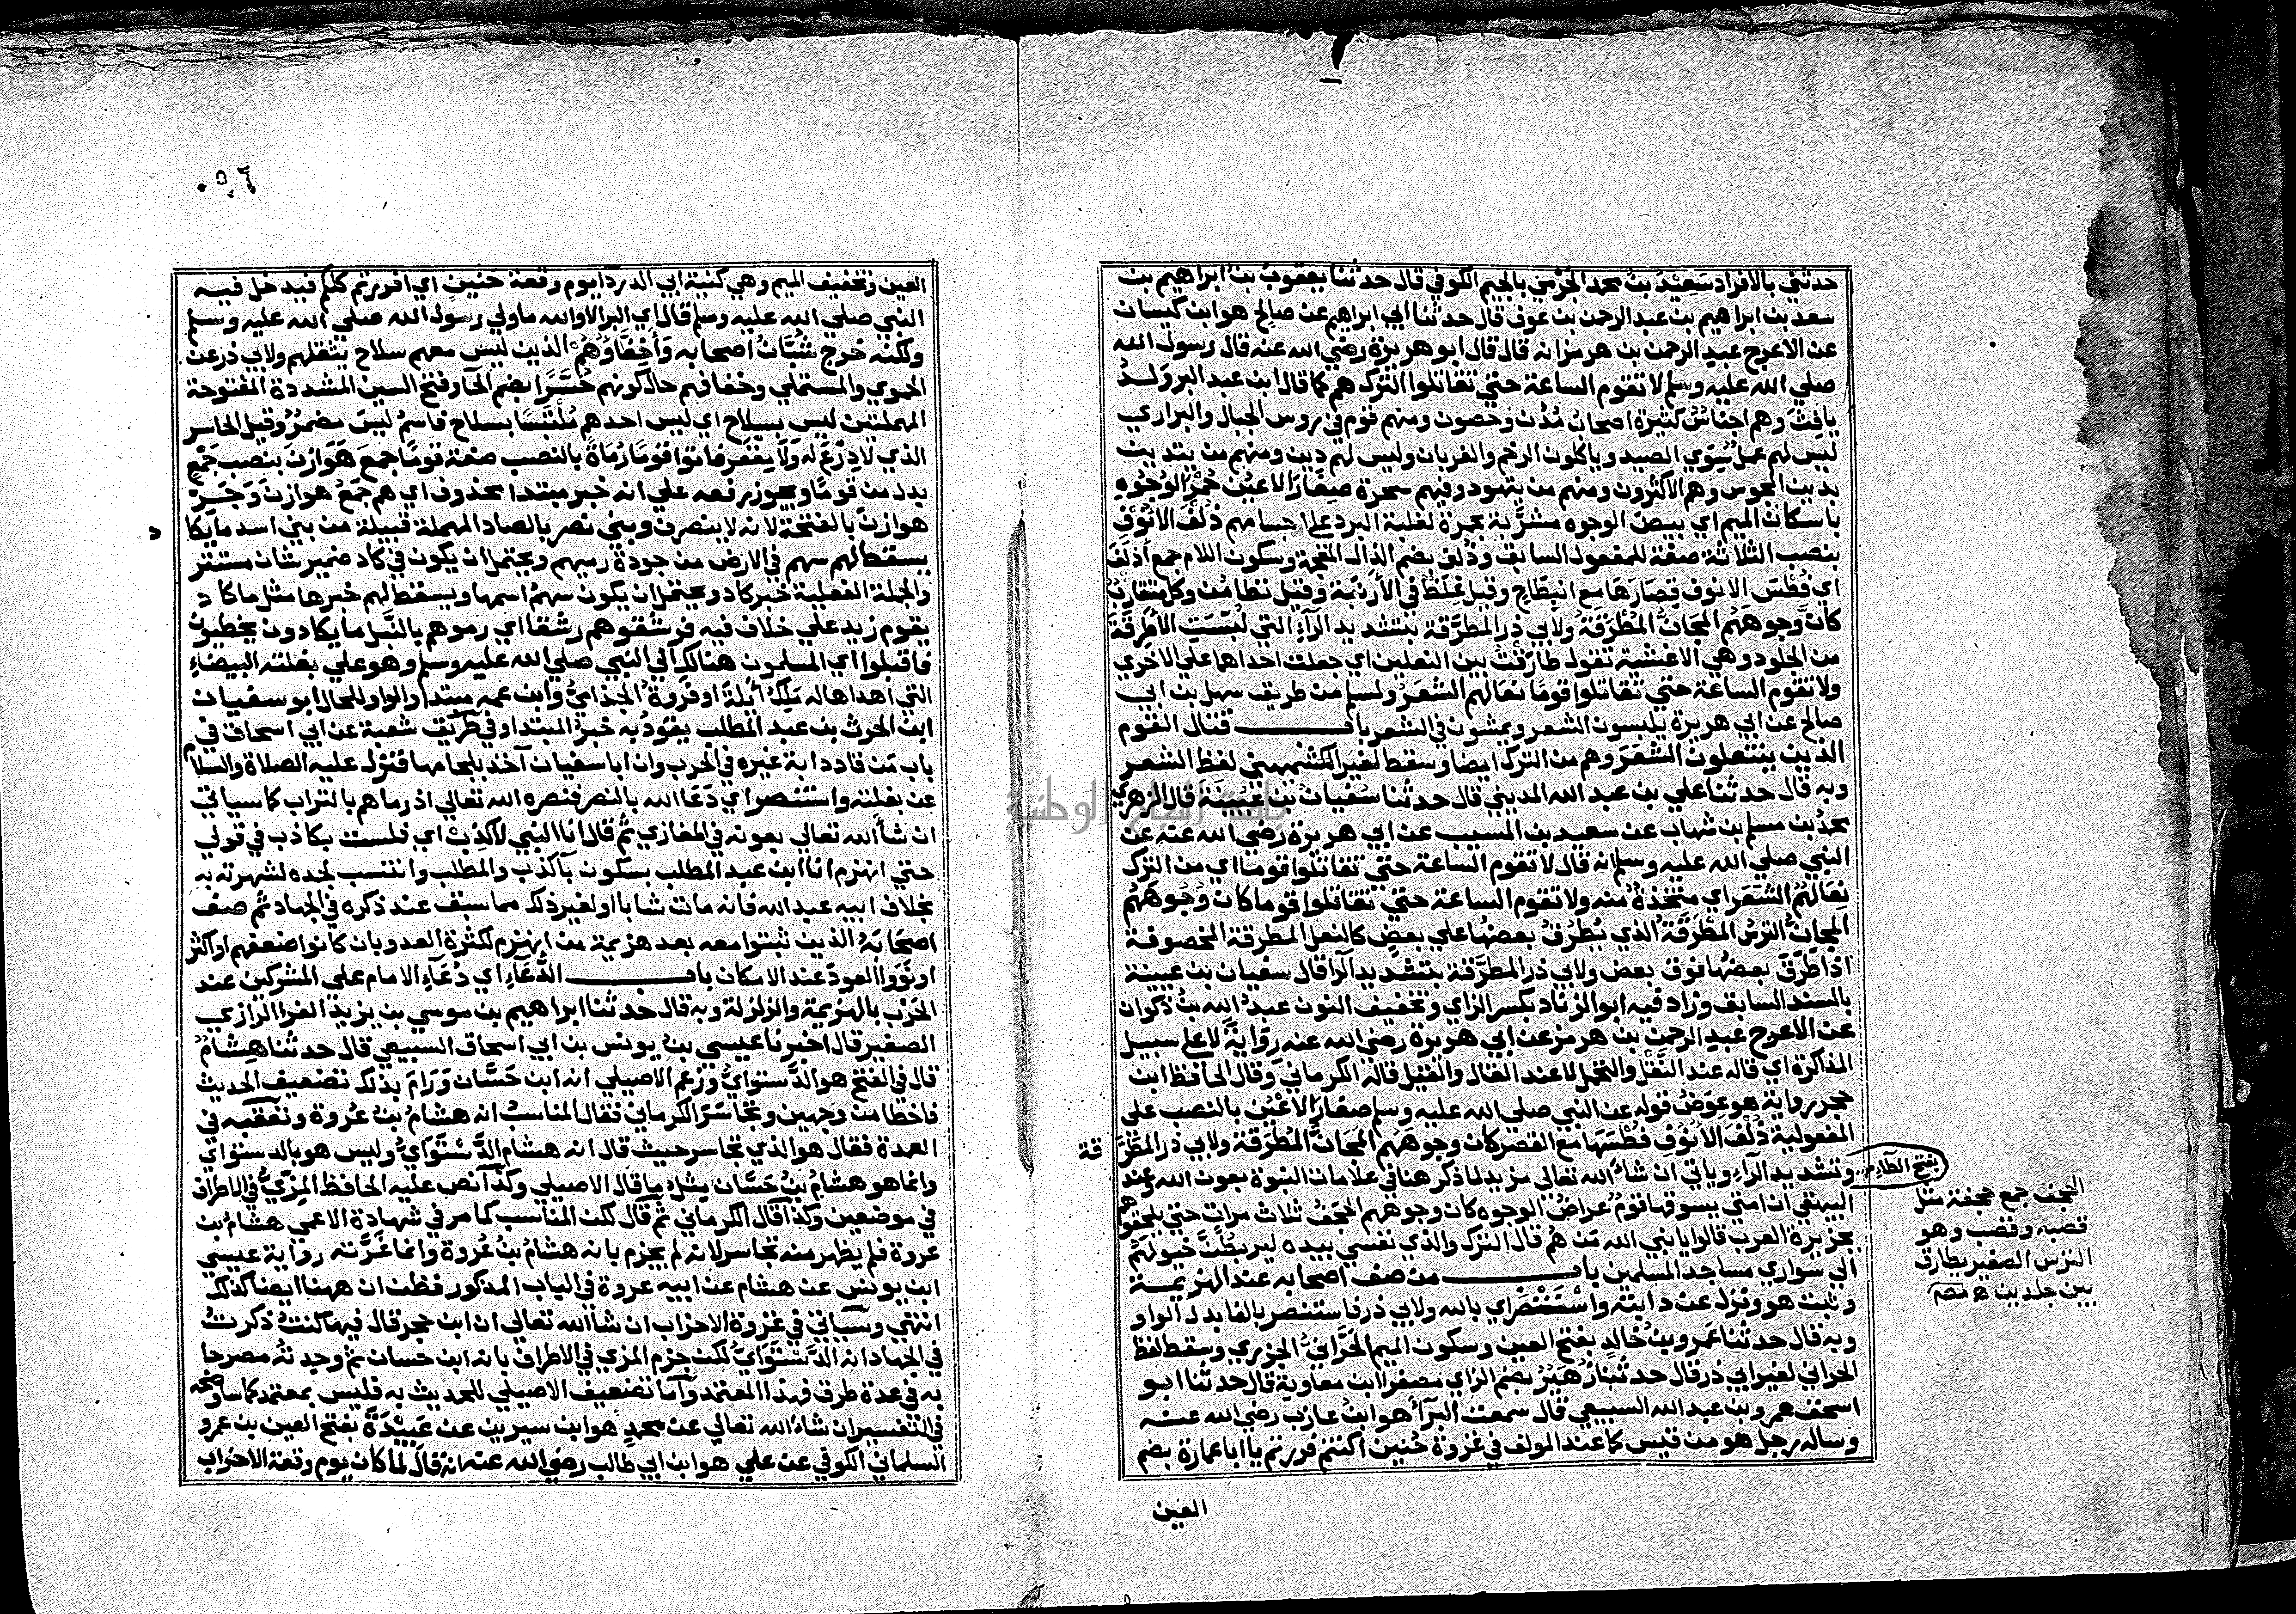 حدثني بالافراد سَعِيْدُ بنُ محمد الجَرْمي بالجيم الكوفي قال حدثنا يعقوبُ بنُ ابراهيم بن
سعد بن ابراهيم بن عبد الرحمن بن عوف قال حدثنا ابي ابراهيم عن صالح هو ابن كيسان
عن الاعرج عبد الرحمن بن هرمز انه قال قال ابو هريرة رضي الله عنه قال رسول الله
صلي الله عليه وسلم لا تقوم الساعة حتي تقاتلوا الترك هم كما قال ابن عبد البر ولد
يافِث وهم اجناسٌ كثيرة اصحاب مُدُن وحصون ومنهم قوم في روس الجبال والبراري
ليس لهم عمل سِوَي الصيد وياكلون الرخم والغربان وليس لهم دين ومنهم من يتدين
بدين المجوس وهم الاكثرون ومنهم من يتهود وفيهم سحرة صِغَارَ الاعيُن حُمْرَ الوُجُوهِ
باسكان الميم اي بيض الوجوه مشرَّبة بحمرة لغلبة البرد علي اجسامهم ذُلْفَ الانُوفِ
بنصب الثلاثة صفة للمفعول السابق وذُلف بضم الذال المعجمة وسكون اللام جمع اَذلَفَ
اي فُطْسَ الانوف قِصَارَهَا مع انبطاح وقيل غِلَظٌ في الأرنبة وقيل تطامُن وكل متقاربُ
كأنَّ وجوهَهُم المجَانُّ المُطْرَقَةُ ولابي ذر المطرَّقة بتشديد الرآء التي لُبّسَتِ الأطرِقَةُ
من الجلود وهي الاغشية تقول طارَقْتُ بين النعلين اي جعلت احداها علي الاخري
ولا تقوم الساعة حتي تقاتلوا قومًا نعالهم الشعَرُ ولمسلم من طريق سهل بن ابي
صالح عن ابي هريرة يلبسون الشعر ويمشون في الشعر باب قتال القوم
الذين ينتعلون الشَّعَرَ وهم من الترك ايضا وسقط لغير الكشميهني لفظ الشعر
وبه قال حدثنا علي بن عبد الله المديني قال حدثنا سُفيانُ بن عُيَينَة قال الزهري
محمدُ بن مسلم بن شهاب عن سعيد بن المسيب عن ابي هريرة رضي الله عنه عن
النبي صلي الله عليه وسلم انه قال لا تقوم الساعة حتي تقاتلوا قوما اي من الترك
نِعَالهُمُ الشعَرُ اي متخذةٌ منه ولا تقوم الساعة حتي تقاتلوا قوما كان وُجُوهَهُم
المجانُّ الترسُ المُطْرَقَةُ الذي يُطْرَقُ بعضُها علي بعضٍ كالنعل المطرقة المخصوفة
اذا طَرَّقَ بعضُها فوق بعض ولابي ذر المطرَّقة بتشديد الرآ قال سفيان بن عيينة
بالسند السابق وزاد فيه ابو الزناد بكسر الزاي وتخفيف النون عبدُ الله بنُ ذكوان
عن الاعرج عبد الرحمن بن هرمز عن ابي هريرة رضي الله عنه رِوَايةً لا علي سبيل
المذاكرة اي قاله عند النَّقْل والتحمل لا عند القال والقيل قاله الكرماني وقال الحافظ ابن
حجر رواية هو عِوَضُ قوله عن النبي صلي الله عليه وسلم صغارَ الاعْيُن بالنصب علي
المفعولية ذُلْفَ الانُوفِ فُطْسَهَا مع القصر كان وجوهَهُم المَجَانُّ المُطْرَقَة ولابي ذر المطَرَّ قة
بفتح الطآء وتشديد الرآء وياتي ان شاء الله تعالي مزيد لما ذكر هنا في علامات النبوة بعون الله وعند
البيهقي ان امتي يسوقها قومٌ عراض الوجوه كان وجوههم الحجَفُ ثلاث مرات حتي يلحقوهم
بجزيرة العرب قالوا يا نبي الله مَن هُم قال الترك والذي نفسي بيده ليربطُنَّ خيولهم
الي سواري مساجد المسلمين باب من صف اصحابه عند الهزيمة
وثبت هو ونزل عن دابته واسْتَنْصَرَ اي بالله ولابي ذر فاستنصر بالفا بدل الواو
وبه قال حدثنا عَمرو بنُ خَالدٍ بفتح العين وسكون الميم الحَرَّانيُّ الجزري وسقط لفظ
الحراني لغير ابي ذر قال حدثنا زُهَيْرٌ بضم الزاي مصغرا ابن معاوية قال حدثنا ابو
اسحق عمرو بن عبد الله السبيعي قال سمعت البرآءَ هو ابنُ عازب رضي الله عنه
وساله رجل هو من قيس كما عند المولف في غزوة حُنين اكنتم فررتم يا ابا عمارة بضم
العين
الحجف جمع حجفة مثل
قصبه وقصب وهو
الترس الصغير يطارق
بين جلدين
٥٦
العين وتخفيف الميم وهي كنية ابي الدردا يوم وقعة حنينٍ اي افررتم كلكم فيدخل فيه
النبي صلي الله عليه وسلم قال اي البرا لا والله ما ولي رسول الله صلي الله عليه وسلم
ولكنه خرج شُبَّانُ اصحابه وَأَخِفَّاؤُهُم الذين ليس معهم سلاح يثقلهم ولابي ذر عن
الحموي والمستملي وخفافهم حال كونهم حُسَّرًا بضم الحآ وفتح السين المشددة المفتوحة
المهملتين ليس بسلاح اي ليس احدهم مُلْتَبَسًا بسلاح فاسمُ ليسَ مضمَرٌ وقيل الحاسر
الذي لا دِرْعَ له وَلا مِغفَر فاتوا قومًا رُمَاةً بالنصب صفة قومًا جَمعَ هَوَازِنَ بنصب جَمْعَ
بدل من قومًا ويجوز رفعه علي انه خبر مبتدا محذوف اي هم جَمْعُ هوازنَ وَجَرِّ
هوازنَ بالفتحة لانه لا ينصرف وبني نصر بالصاد المهملة قبيلة من بني اسد ما يكاد
يسقط لهم سهم في الارض من جودة رميهم ويحتمل ان يكون في كاد ضمير شان مستتر
والجملة الفعلية خبر كاد ويحتمل ان يكون سهمٌ اسمها ويسقط لهم خبرها مثل ما كاد
يقوم زيد علي خلاف فيه فرشقوهم رشقا اي رموهم بالنَّبل ما يكادون يخطيون
فاقبلوا اي المسلمون هنالك الي النبي صلي الله عليه وسلم وهو علي بغلته البيضاء
التي اهداها له مَلِكُ أَيْلَة او فَروةُ الجذاميُّ وابن عمه مبتدا والواو للحال ابو سفيان
ابن الحرث بن عبد المطلب يقودُ به خبرُ المبتدا وفي طريق شعبة عن ابي اسحاق في
باب مَن قاد دابة غيره في الحرب وان ابا سفيان آخذ بلجامها فنزل عليه الصلاة والسلام
عن بغلته واستنصر اي دَعَا الله بالنصر فنصره الله تعالي اذ رماهم بالتراب كما سياتي
ان شاء الله تعالي بعونه في المغازي ثم قال انا النبي لا كذِب اي فلست بكاذب في قولي
حتي انهزم انا ابن عبد المطلب بسكون بآ كذب والمطلب وانتسب لجده لشهرته به
بخلاف ابيه عبد الله فانه مات شابا او لغير ذلك مما سبق عند ذكره في الجهاد ثم صف
اصحَابَهُ الذين ثبتوا معه بعد هزيمة من انهزم لكثرة العدو بان كانوا ضعفهم او اكثر
او نَوَوا العود عند الامكان باب الدُّعَآءِ اي دُعَآءِ الامام علي المشركين عند
الحَرْب بالهزيمة والزلزلة وبه قال حدثنا ابراهيم بن موسي بن يزيد الفرا الرازي
الصغير قال اخبرنا عيسي بنُ يونس بن ابي اسحاق السبيعي قال حدثنا هِشَامٌ
قال في الفتح هو الدَّستوايُّ وزعم الاصيلي انه ابن حَسَّان وَرَامَ بذلك تضعيف الحديث
فاخطا من وجهين وتجاسَرَ الكرماني فقال المناسبُ انه هشامُ بنُ عُروة وتعقبه في
العمدة فقال هو الذي تجاسر حيث قال انه هشام الدَّسْتَوَايُّ وليس هو بالدستوائي
وانما هو هشامُ بنُ حَسَّان مثل ما قال الاصيلي وكذا نص عليه الحافظ المِزِّيُّ في الاطراف
في موضعين وكذا قال الكرماني ثم قال لكن المناسب كما مر في شهادة الاعمي هشامُ بن
عروة فلم يظهر منه تجاسر لانه لم يجزم بانه هشامُ بنُ عُروة وانما غَرَّته رواية عيسي
ابن يونس عن هشام عن ابيه عروة في الباب المذكور فظن ان ههنا ايضا كذلك
انتهي وسياتي في غزوة الاحزاب ان شا الله تعالي ان ابن حجر قال فيها كنت ذكرت
في الجهاد انه الدَّسْتَوَايُّ لكن جزم المزي في الاطراف بانه ابن حسان ثم وجدته مصرحا
به في عدة طرق فهذا المعتمد وأما تضعيف الاصيلي للحديث به فليس بمعتمد كما ساوضحه
في التفسير ان شاء الله تعالي عن محمدٍ هو ابن سيرين عن عَبِيْدَةَ بفتح العين بن عمرو
السلماني الكوفي عن علي هو ابن ابي طالب رضي الله عنه انه قال لما كان يوم وقعة الاحزاب